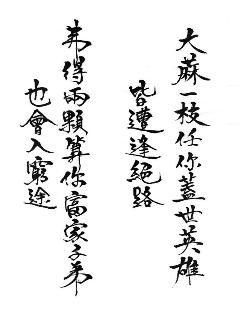 大蔴一枝任你蓋世英雄
皆遭逢絕路
弗得兩顆算你富家子弟
也會入窮途